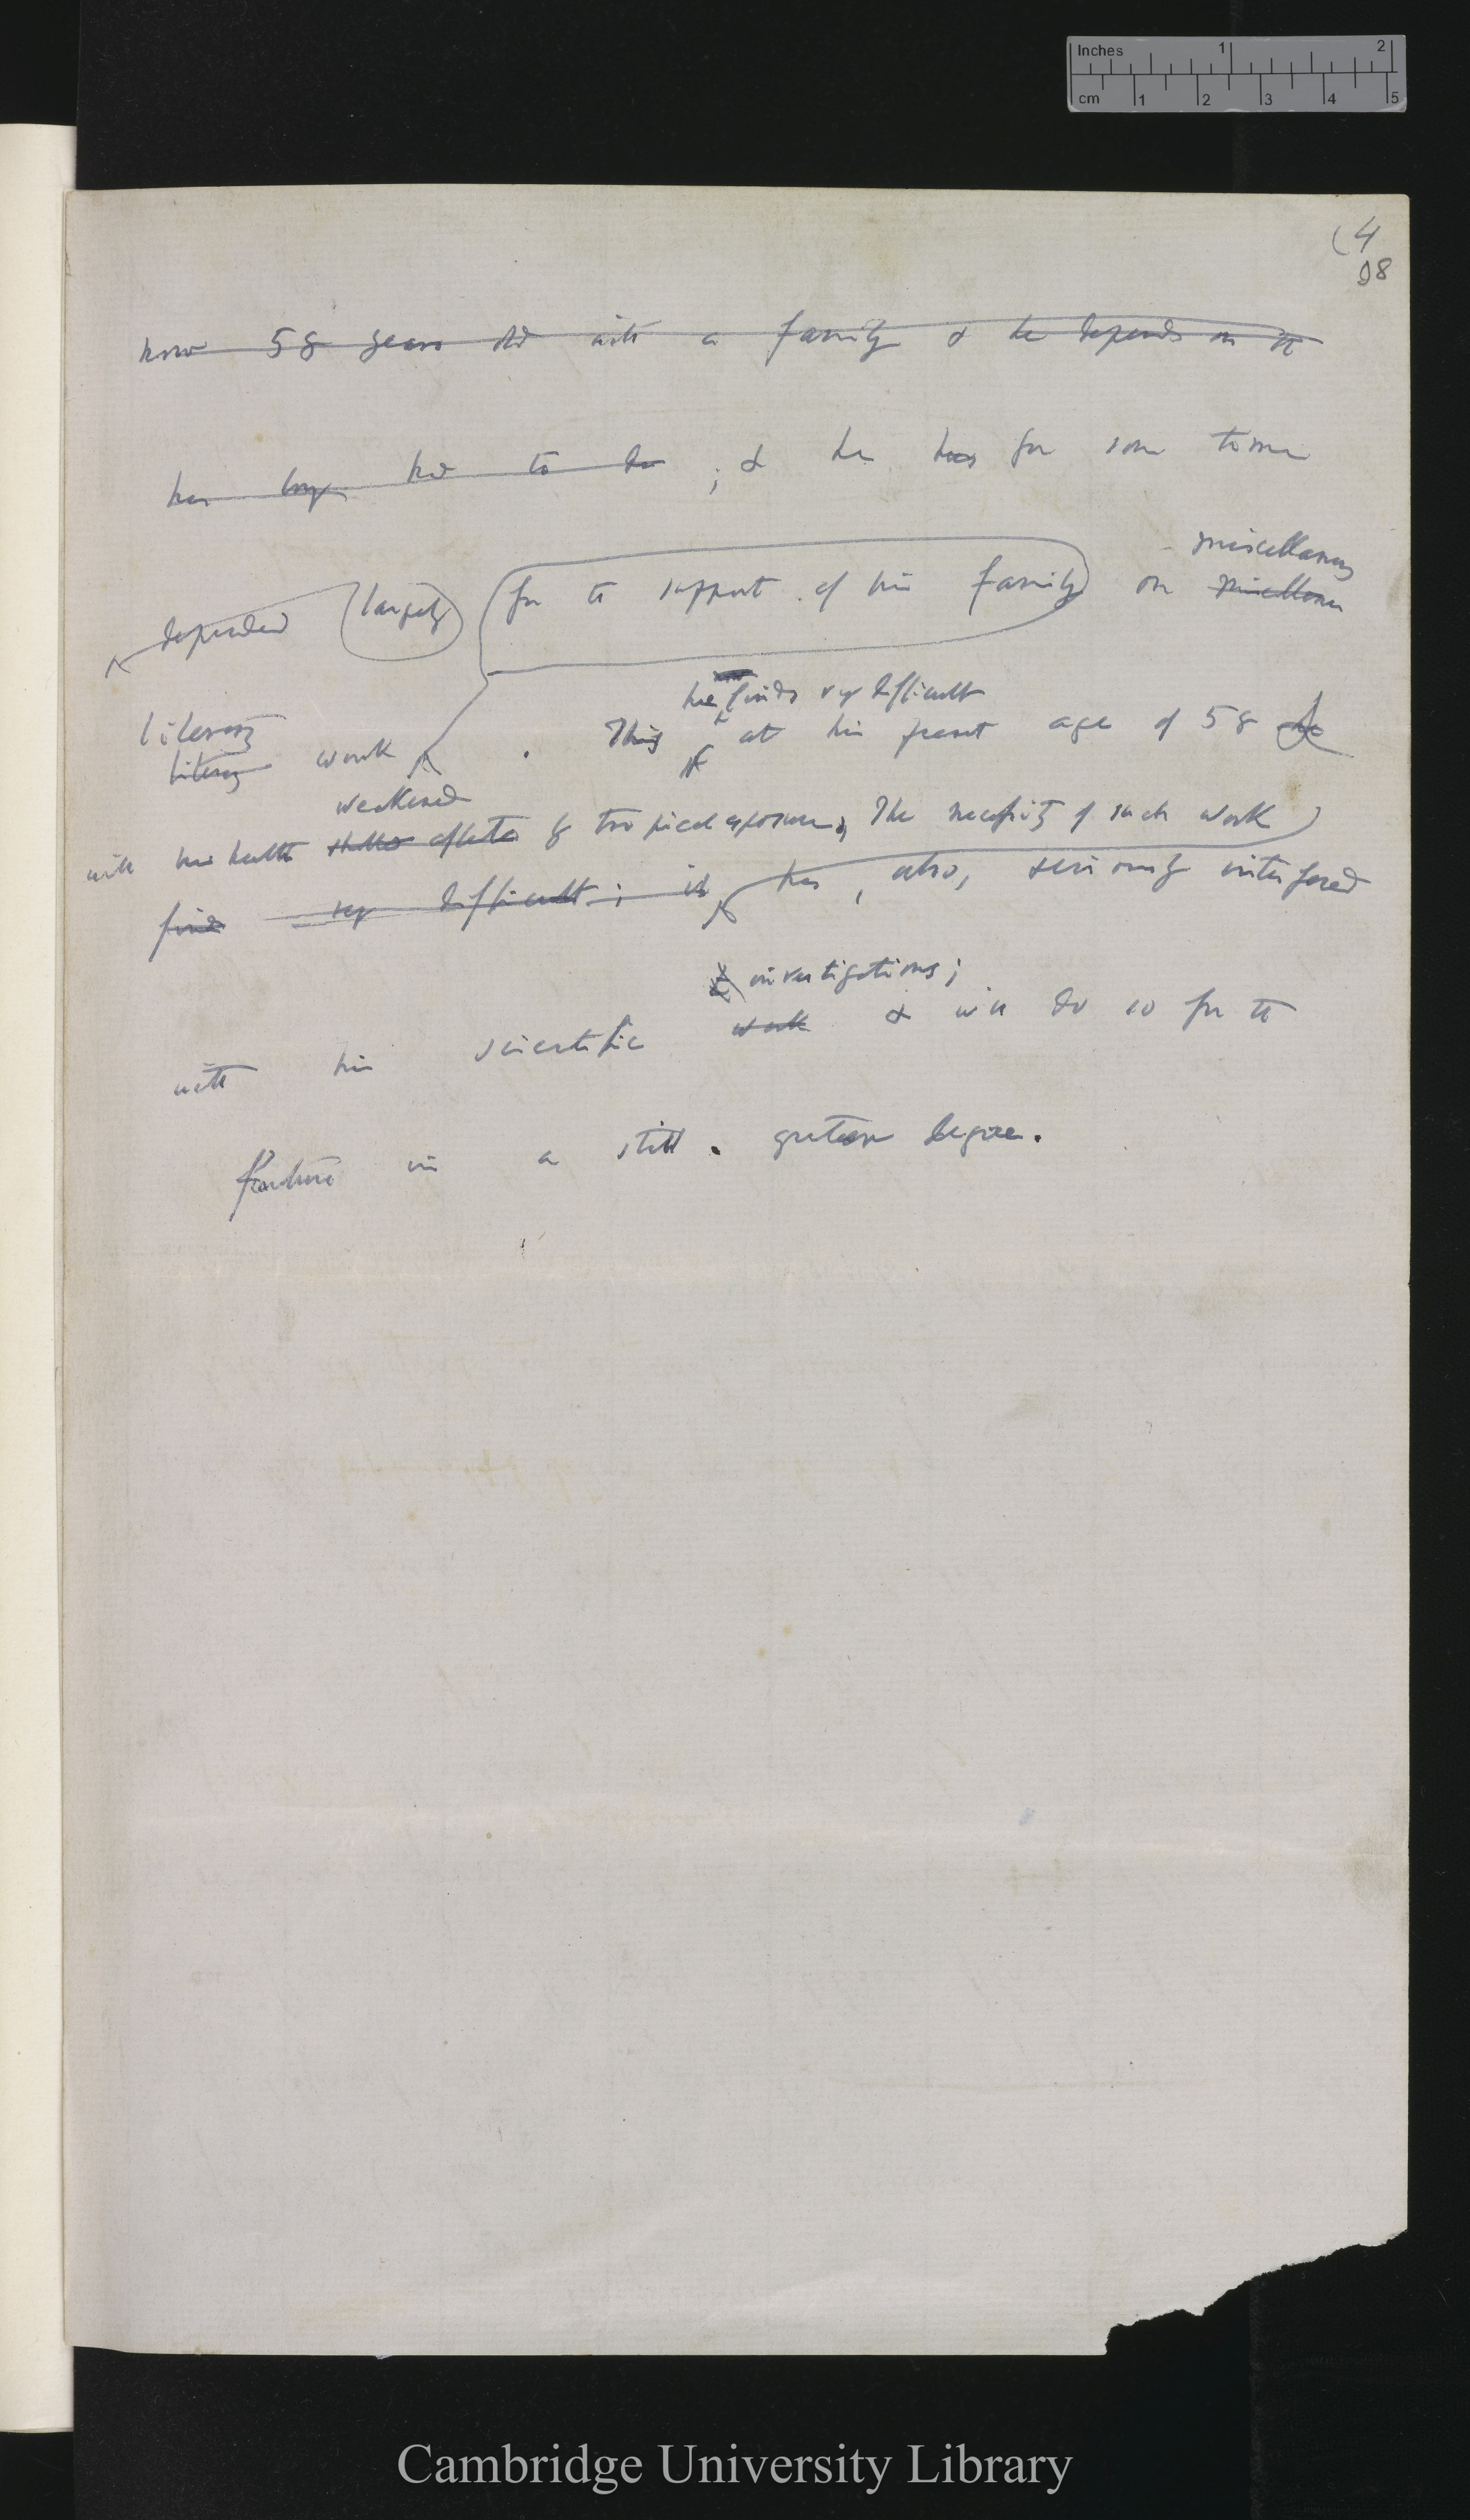 Inches 1 2
cm 1 2 3 4 5
(4
98
now 58 years old with a family & he depends on it
has long had to do ; & he has for some time
miscellaneous
depended (largely) (for the support of his family) on miscellaneous
he now finds very difficult
literary
literary work . This at his present age of 58 he
weakened
with his health affected by tropical exposure, The necessity of such work
finds very difficult ; it has, also, seriously interfered
investigations ;
with his scientific work & will do so for the
future in a still greater degree.
Cambridge University Library